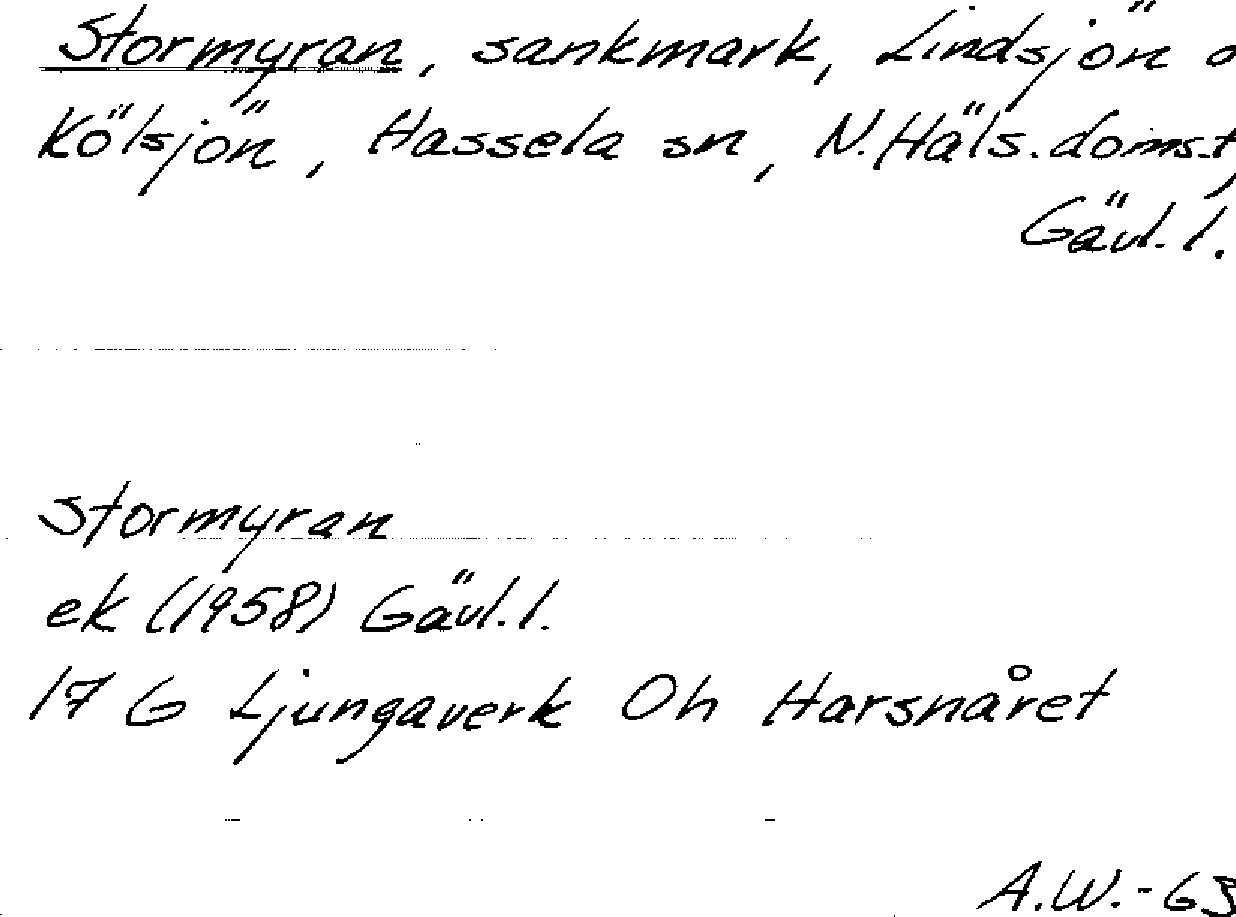 Stormyran, sankmark, Lindsjön o
Kölsjön, Hassela sn, N.Häls.doms.t,
Gävl.l.
Stormyran
ek (1958) Gävl.l.
17 G Ljungaverk Oh Harsnåret
A.W.-63